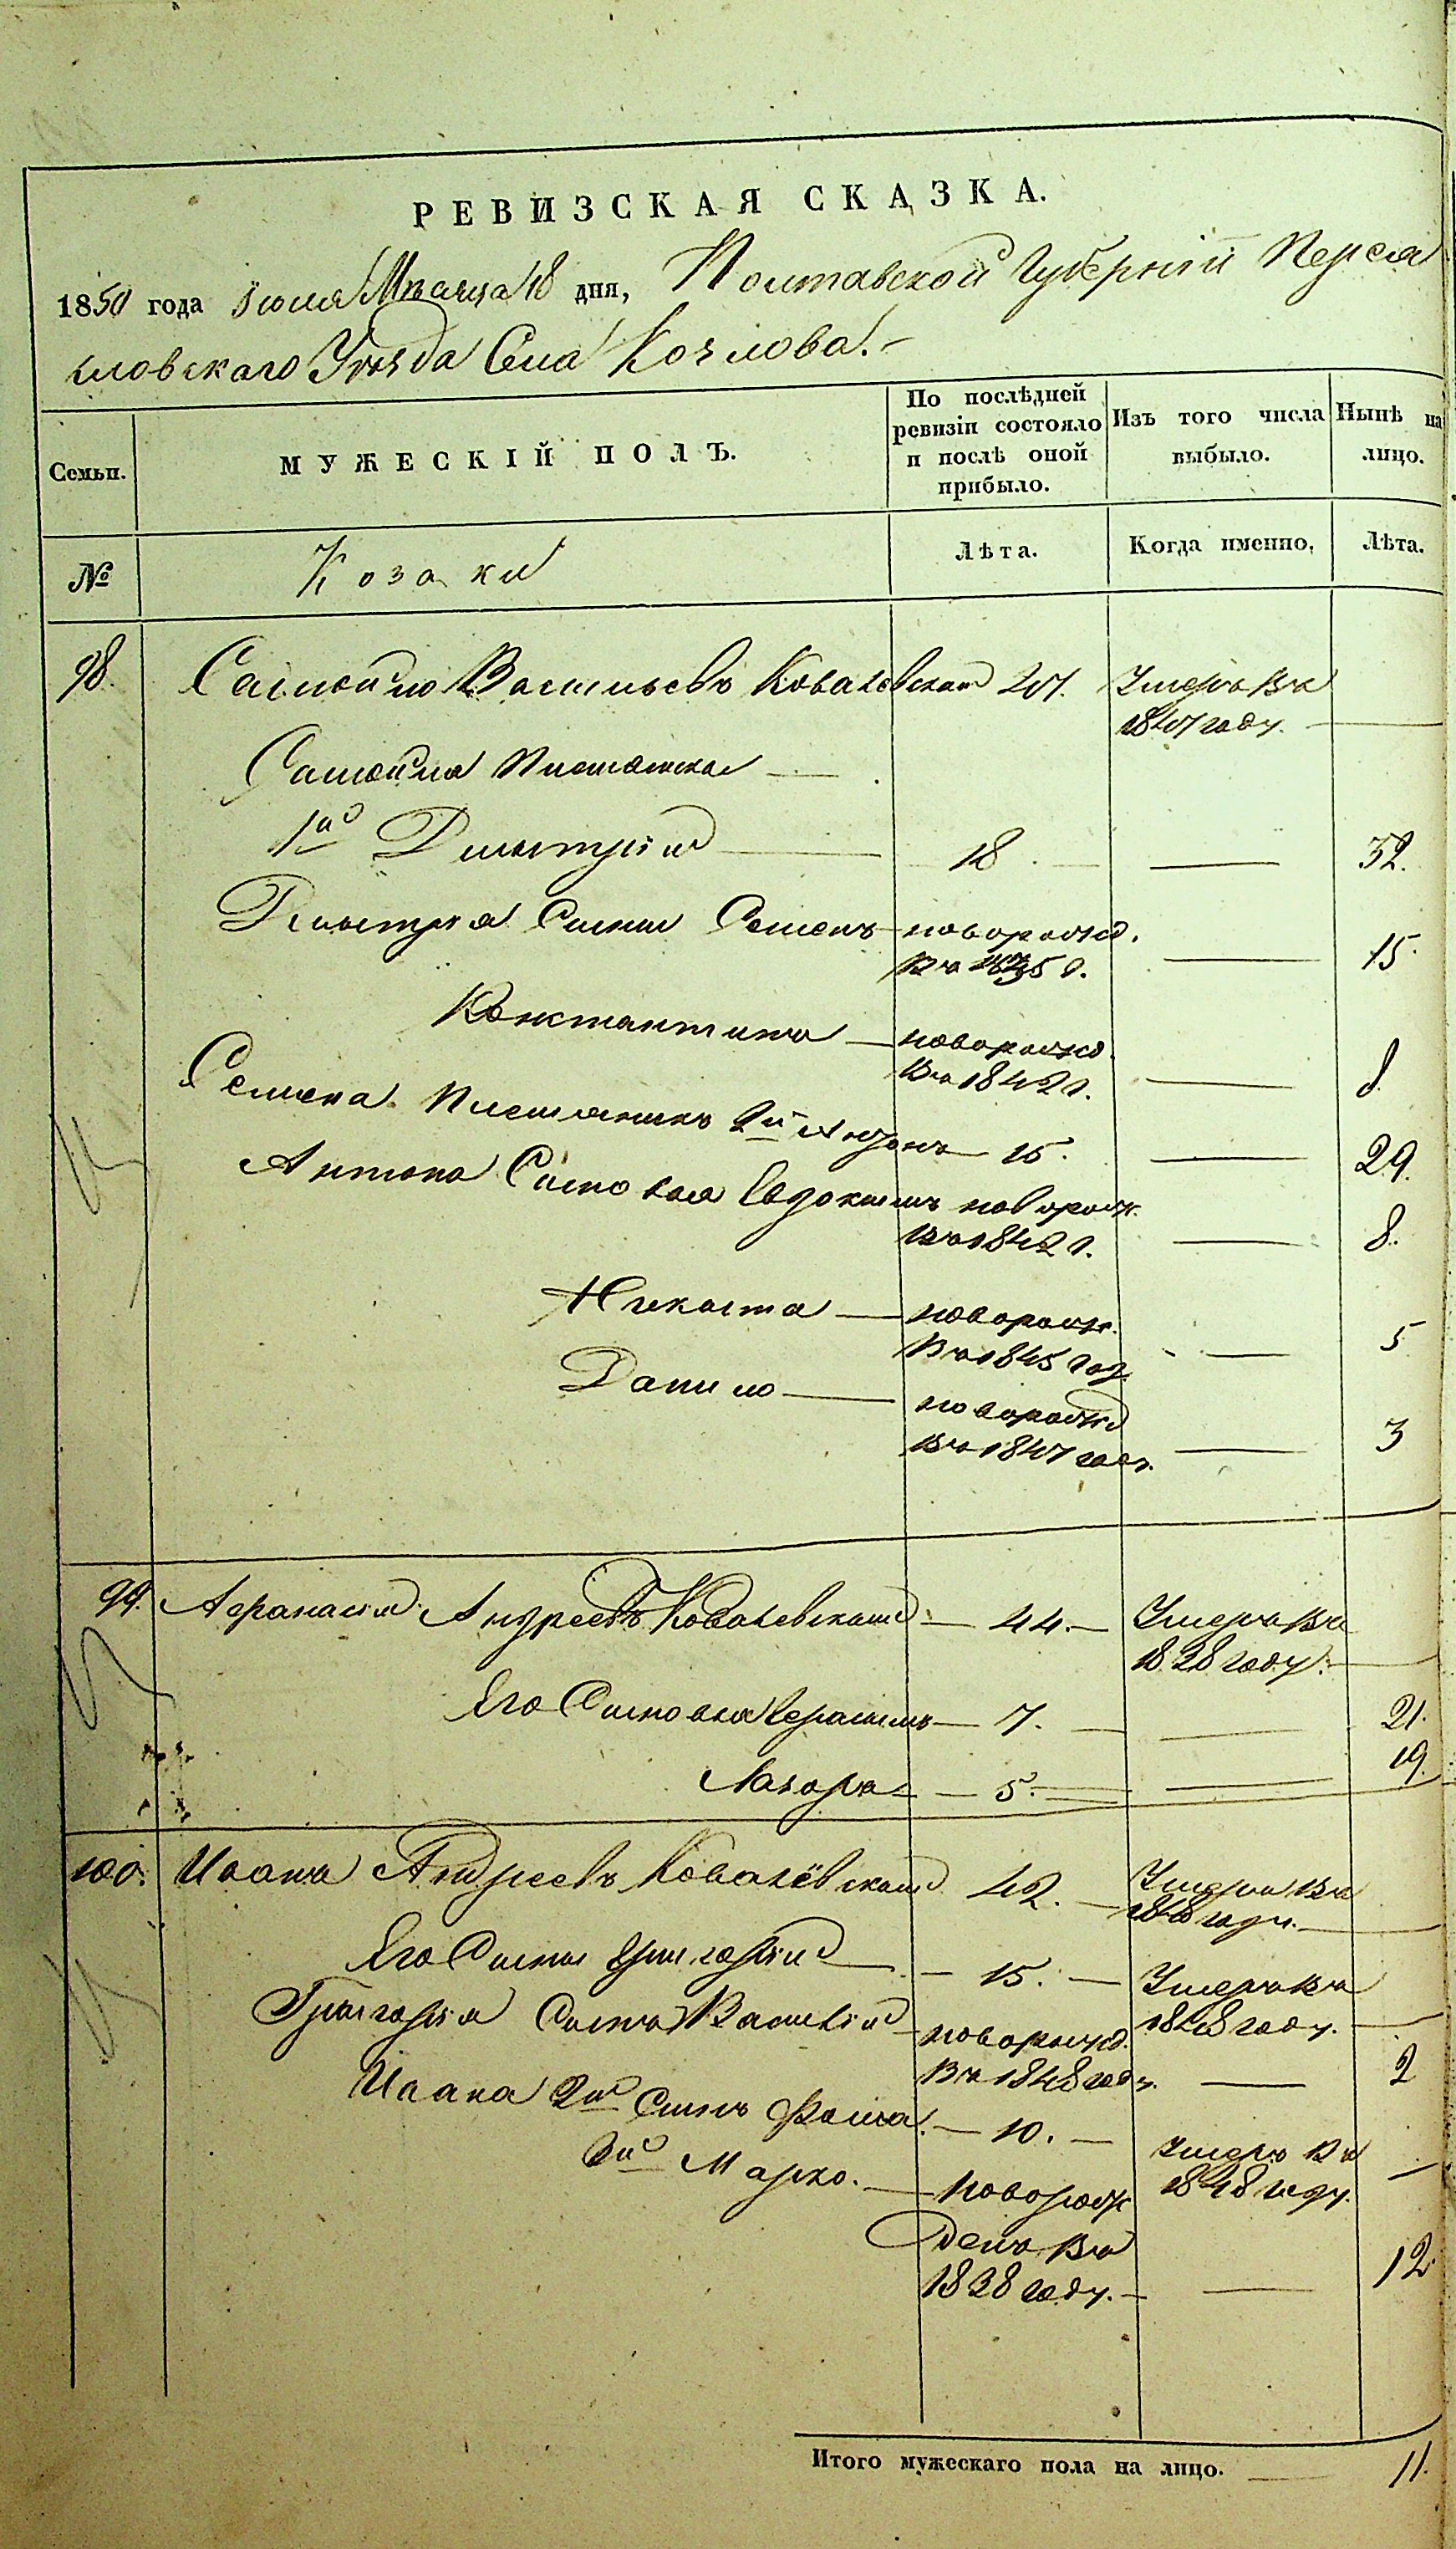 РЕВИЗСКАЯ СКАЗКА.
1850 года Июля Мѣсяца 18 дня, Полтавской Губерніи Перея
словскаго Уѣзда Села Козлова.-
Семьи. МУЖЕСКІЙ ПОЛЪ. По послѣдней ревизіи состояло и послѣ оной прибыло. Изъ того числа выбыло. Нынѣ на лицо.
№ Козаки Лѣта. Когда именно. Лѣта.
98. Самойло Васильевъ Ковалевскій Умеръ въ
году. —
Самойла Племянники —
1й Дмитрій — 18 — — 32.
Дмитрія Сыны Семенъ новорожд. — 15.
Въ 1835 г.
Константинъ — новорожд. — 8
Въ 1842 г.
Семена Племянникъ 2й Антонъ — 15. — 29.
Антона Сыновья Евдокимъ новорож. — 8.
Въ 1842 г.
Никита — новорож. — 5
Въ 1845 год.
Данило — новорожд — 3
Въ 1847 году.
99. Афанасій Андреевъ Ковалевскій — 44. — Умеръ въ
1838 году. —
Его Сыновья Герасимъ — 7. — — 21.
Лазарь — 5. — — 19.
100. Иванъ Андреевъ Ковалевскій 42. — Умеръ въ
году. —
Его Сыны Григорій — 15. — Умеръ въ
1848 году. —
Григорія Сынъ Василій новорожд. — 2
Въ 1848 году.
Ивана 2й Сынъ Фома. — 10. — Умеръ въ
1848 году. —
3й Марко. — новорож
денъ въ
1838 году. — — 12
Итого мужескаго пола на лицо. — 11.